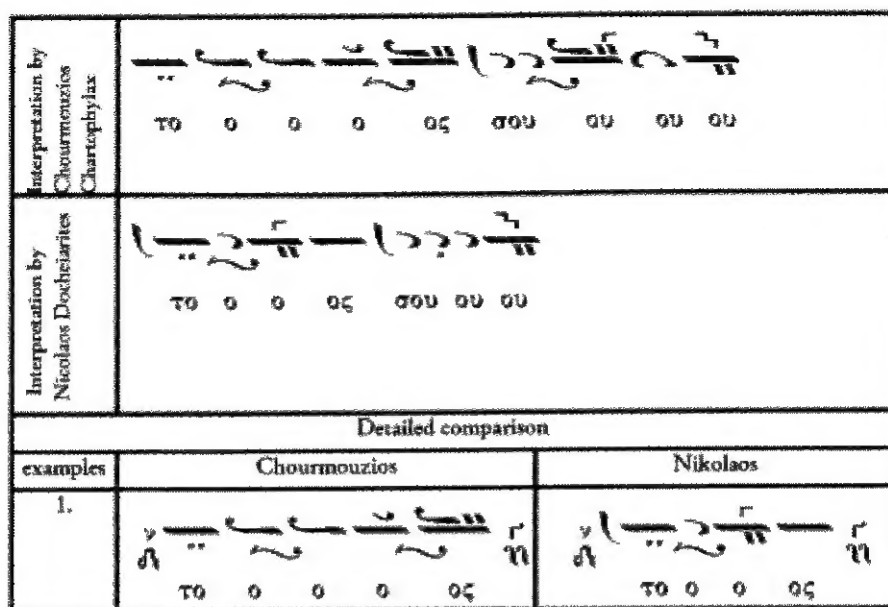 Interpretation by
Chourmouzios
Chartophylax
το ο ο ο ος σου ου ου ου
Interpretation by
Nicolaos Docheiarites
το ο ο ος σου ου ου
Detailed comparison
examples Chourmouzios Nikolaos
1.
το ο ο ο ος το ο ο ος